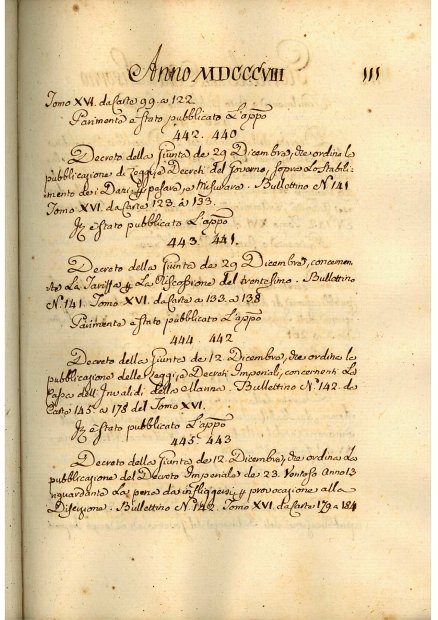 Anno MDCCCVIII 111
Tomo XVI. da Carte 99. a 122
Parimente è stato pubblicato l'appo
442. 440
Decreto della Giunta de 29 Dicembre, che ordina la
pubblicazione di Leggi, e Decreti del Governo, sopra lo Stabili-
mento de i Dazj pesare, e misurare. Bullettino N. 141
Tomo XVI. da Carte 123. a 133.
It. è stato pubblicato l'appo
443. 441.
Decreto della Giunta de 29 Dicembre, concernen-
te la Tariffa la Riscossione del trentesimo. Bullettino
N. 141. Tomo XVI. da Carte a 133. a 138
Parimente è stato pubblicato l'appo
444. 442
Decreto della Giunta de 12. Dicembre, che ordina la
pubblicazione delle Leggi, e Decreti Imperiali, concernenti la
Cassa dell'Invalidi della Marina. Bullettino N. 142. da
Carte 145. a 178 del Tomo XVI.
It. è stato pubblicato l'appo
445. 443
Decreto della Giunta de 12. Dicembre, che ordina la
pubblicazione del Decreto Imperiale de 23. Ventoso Anno 13
riguardante la pena da infliggersi provocazione alla
Diserzione. Bullettino N. 142. Tomo XVI. da Carte 179 a 184